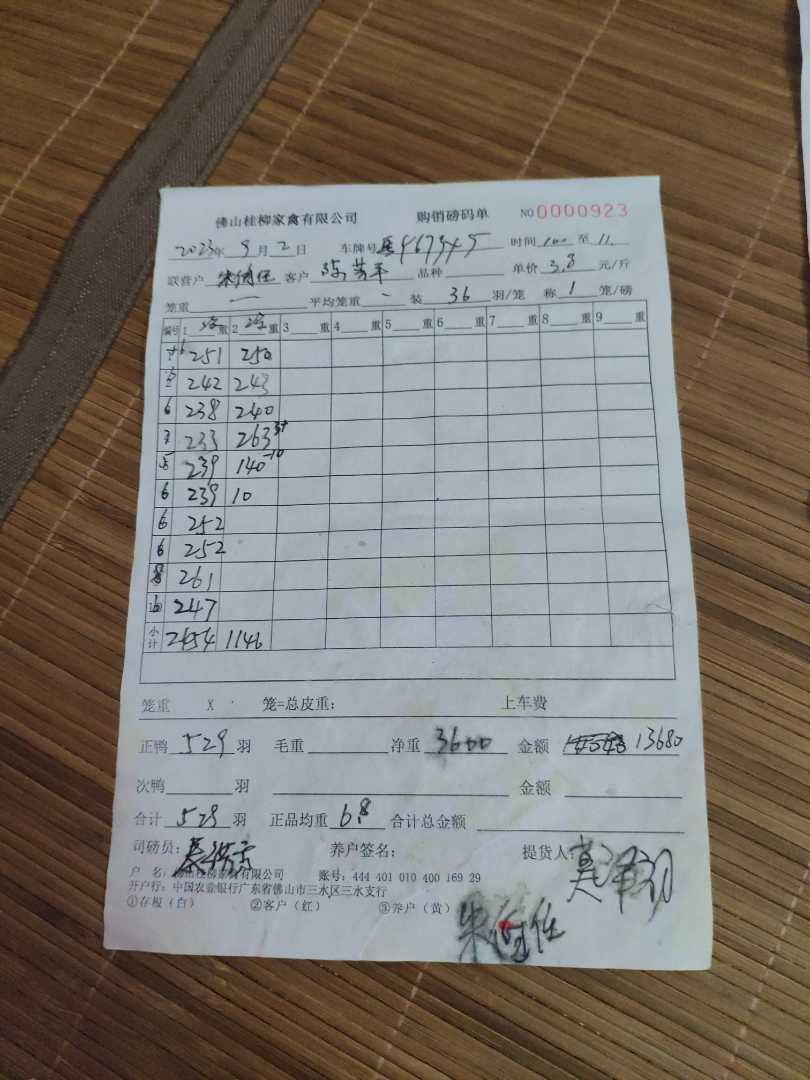 佛山桂柳家禽有限公司 购销磅码单 NO 0000923
2023年 9月 2日 车牌号 467945 时间 100 至 11.
联营户 客户 陈芳平 品种 单价 3.8 元/斤
笼重 一 平均笼重 - 装 36 羽/笼 称 1 笼/磅
编号 1 重 2 重 3 重 4 重 5 重 6 重 7 重 8 重 9 重
251 250
242 243
6 238 240
7 233 263
5 239 140 -10
6 239 10
6 252
6 252
8 261
247
小计 2454 1146
笼重 X 笼=总皮重: 上车费
正鸭 529 羽 毛重 净重 3600 金额 13680
次鸭 羽 金额
合计 529 羽 正品均重 6.8 合计总金额
司磅员: 养户签名: 提货人: 莫泽羽
户 名: 佛山桂柳家禽有限公司 账号: 444 401 010 400 169 29
开户行: 中国农业银行广东省佛山市三水区三水支行
①存根(白) ②客户(红) ③养户(黄)